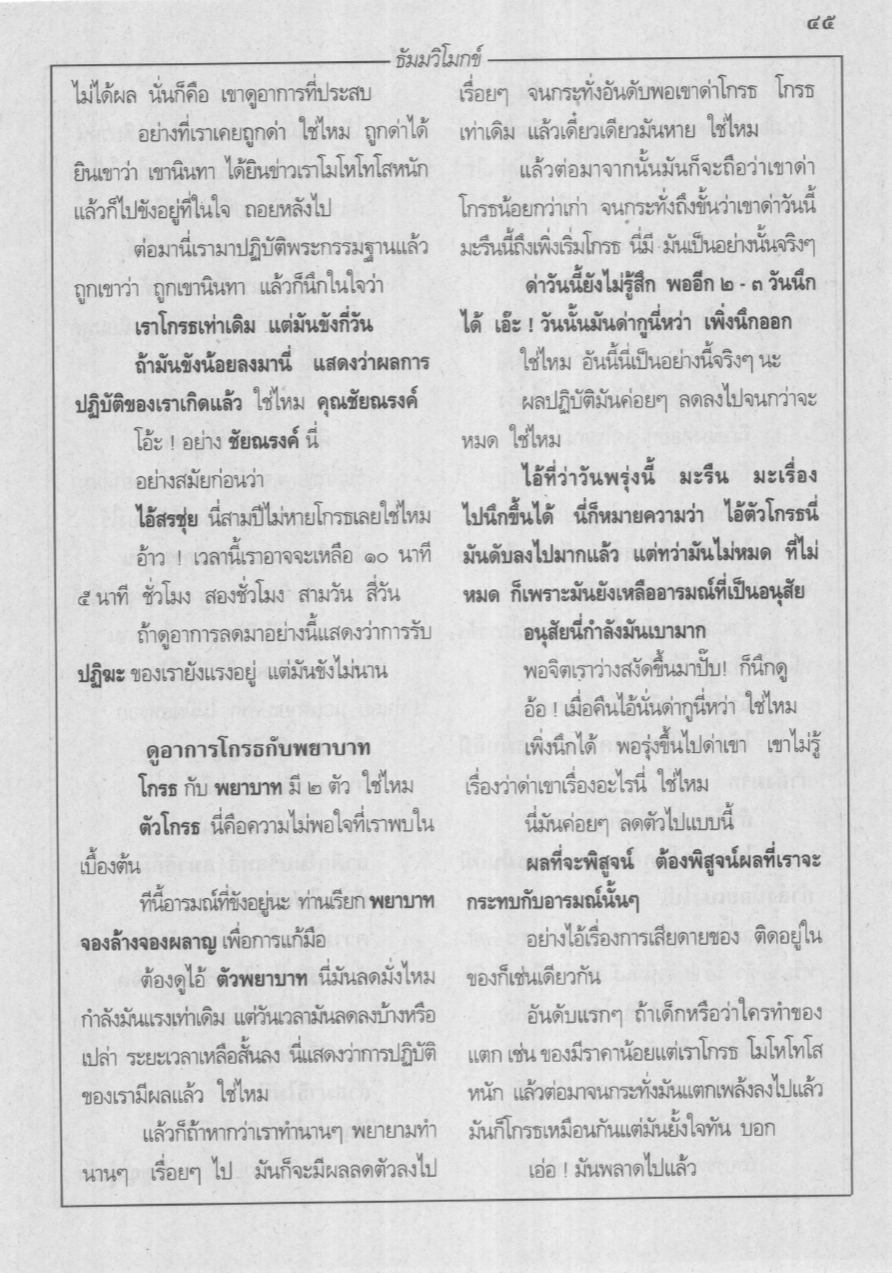 ๔๕
ธัมมวิโมกข์
ไม่ได้ผล นั่นก็คือ เขาดูอาการที่ประสบ
อย่างที่เราเคยถูกด่า ใช่ไหม ถูกด่าได้
ยินเขาว่า เขานินทา ได้ยินข่าวเราโมโหโทโสหนัก
แล้วก็ไปขังอยู่ที่ในใจ ถอยหลังไป
ต่อมานี่เรามาปฏิบัติพระกรรมฐานแล้ว
ถูกเขาว่า ถูกเขานินทา แล้วก็นึกในใจว่า
เราโกรธเท่าเดิม แต่มันขังกี่วัน
ถ้ามันขังน้อยลงมานี่ แสดงว่าผลการ
ปฏิบัติของเราเกิดแล้ว ใช่ไหม คุณชัยณรงค์
โอ้ะ ! อย่าง ชัยณรงค์ นี่
อย่างสมัยก่อนว่า
ไอ้สรชุ่ย นี่สามปีไม่หายโกรธเลยใช่ไหม
อ้าว ! เวลานี้เราอาจจะเหลือ ๑๐ นาที
๕ นาที ชั่วโมง สองชั่วโมง สามวัน สี่วัน
ถ้าดูอาการลดมาอย่างนี้แสดงว่าการรับ
ปฏิฆะ ของเรายังแรงอยู่ แต่มันขังไม่นาน
ดูอาการโกรธกับพยาบาท
โกรธ กับ พยาบาท มี ๒ ตัว ใช่ไหม
ตัวโกรธ นี่คือความไม่พอใจที่เราพบใน
เบื้องต้น
ทีนี้อารมณ์ที่ขังอยู่นะ ท่านเรียก พยาบาท
จองล้างจองผลาญ เพื่อการแก้มือ
ต้องดูไอ้ ตัวพยาบาท นี่มันลดมั่งไหม
กำลังมันแรงเท่าเดิม แต่วันเวลามันลดลงบ้างหรือ
เปล่า ระยะเวลาเหลือสั้นลง นี่แสดงว่าการปฏิบัติ
ของเรามีผลแล้ว ใช่ไหม
แล้วก็ถ้าหากว่าเราทำนานๆ พยายามทำ
นานๆ เรื่อยๆ ไป มันก็จะมีผลลดตัวลงไป
เรื่อยๆ จนกระทั่งอันดับพอเขาด่าโกรธ โกรธ
เท่าเดิม แล้วเดี๋ยวเดียวมันหาย ใช่ไหม
แล้วต่อมาจากนั้นมันก็จะถือว่าเขาด่า
โกรธน้อยกว่าเก่า จนกระทั่งถึงขั้นว่าเขาด่าวันนี้
มะรืนนี้ถึงเพิ่งเริ่มโกรธ นี่มี มันเป็นอย่างนั้นจริงๆ
ด่าวันนี้ยังไม่รู้สึก พออีก ๒ - ๓ วันนึก
ได้ เอ๊ะ ! วันนั้นมันด่ากูนี่หว่า เพิ่งนึกออก
ใช่ไหม อันนี้นี่เป็นอย่างนี้จริงๆ นะ
ผลปฏิบัติมันค่อยๆ ลดลงไปจนกว่าจะ
หมด ใช่ไหม
ไอ้ที่ว่าวันพรุ่งนี้ มะรืน มะเรื่อง
ไปนึกขึ้นได้ นี่ก็หมายความว่า ไอ้ตัวโกรธนี่
มันดับลงไปมากแล้ว แต่ทว่ามันไม่หมด ที่ไม่
หมด ก็เพราะมันยังเหลืออารมณ์ที่เป็นอนุสัย
อนุสัยนี่กำลังมันเบามาก
พอจิตเราว่างสงัดขึ้นมาปั๊บ! ก็นึกดู
อ้อ ! เมื่อคืนไอ้นั่นด่ากูนี่หว่า ใช่ไหม
เพิ่งนึกได้ พอรุ่งขึ้นไปด่าเขา เขาไม่รู้
เรื่องว่าด่าเขาเรื่องอะไรนี่ ใช่ไหม
นี่มันค่อยๆ ลดตัวไปแบบนี้
ผลที่จะพิสูจน์ ต้องพิสูจน์ผลที่เราจะ
กระทบกับอารมณ์นั้นๆ
อย่างไอ้เรื่องการเสียดายของ ติดอยู่ใน
ของก็เช่นเดียวกัน
อันดับแรกๆ ถ้าเด็กหรือว่าใครทำของ
แตก เช่น ของมีราคาน้อยแต่เราโกรธ โมโหโทโส
หนัก แล้วต่อมาจนกระทั่งมันแตกเพล้งลงไปแล้ว
มันก็โกรธเหมือนกันแต่มันยั้งใจทัน บอก
เอ่อ ! มันพลาดไปแล้ว